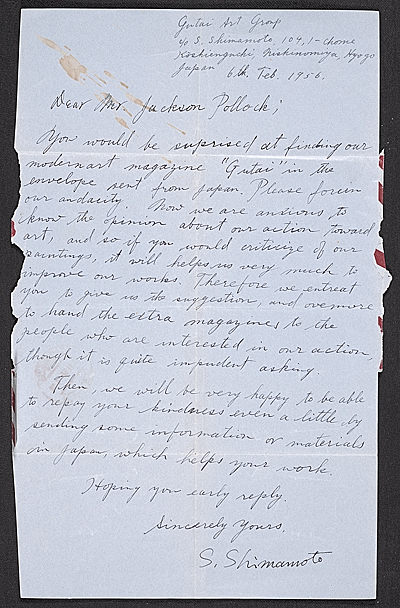 Gutai Art Group
c/o S. Shimamoto, 104, 1-chome
Koshienguchi, Nishinomiya, Hyogo
Japan 6th, Feb. 1956.
Dear Mr. Jackson Pollock;
You would be suprised at finding our
modernart magazine "Gutai" in the
envelope sent from Japan. Please
our audacity. Now we are anxious to
know the opinion about our action toward
art, and so if you would criticize of our
paintings, it will helps us very much to
improve our works. Therefore we entreat
you to give us the suggestion, and overmore
to hand the extra magazines to the
people who are interested in our action,
though it is quite impudent asking.
Then, we will be very happy to be able
to repay your kindness even a little, by
sending some information or materials
in Japan, which helps your work.
Hoping you early reply.
Sincerely Yours,
S. Shimamoto